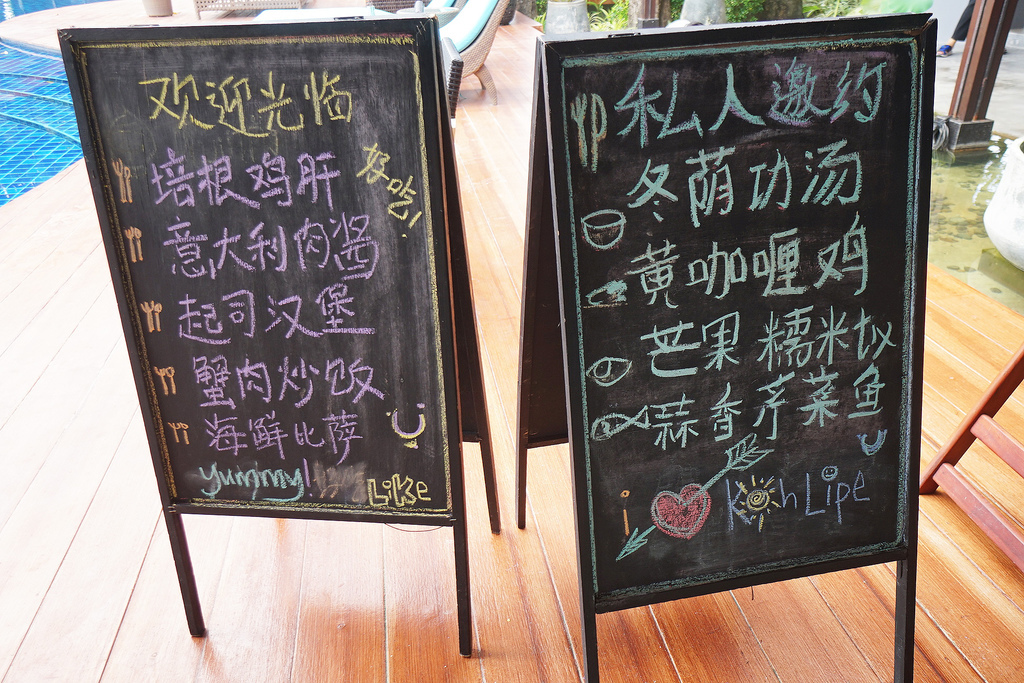 欢迎光临
培根鸡肝
好吃!
意大利肉酱
起司汉堡
蟹肉炒饭
海鲜比萨
yummy!
LiKe
私人邀约
冬荫功汤
黄咖喱鸡
芒果糯米饭
蒜香芹菜鱼
i Koh Lipe